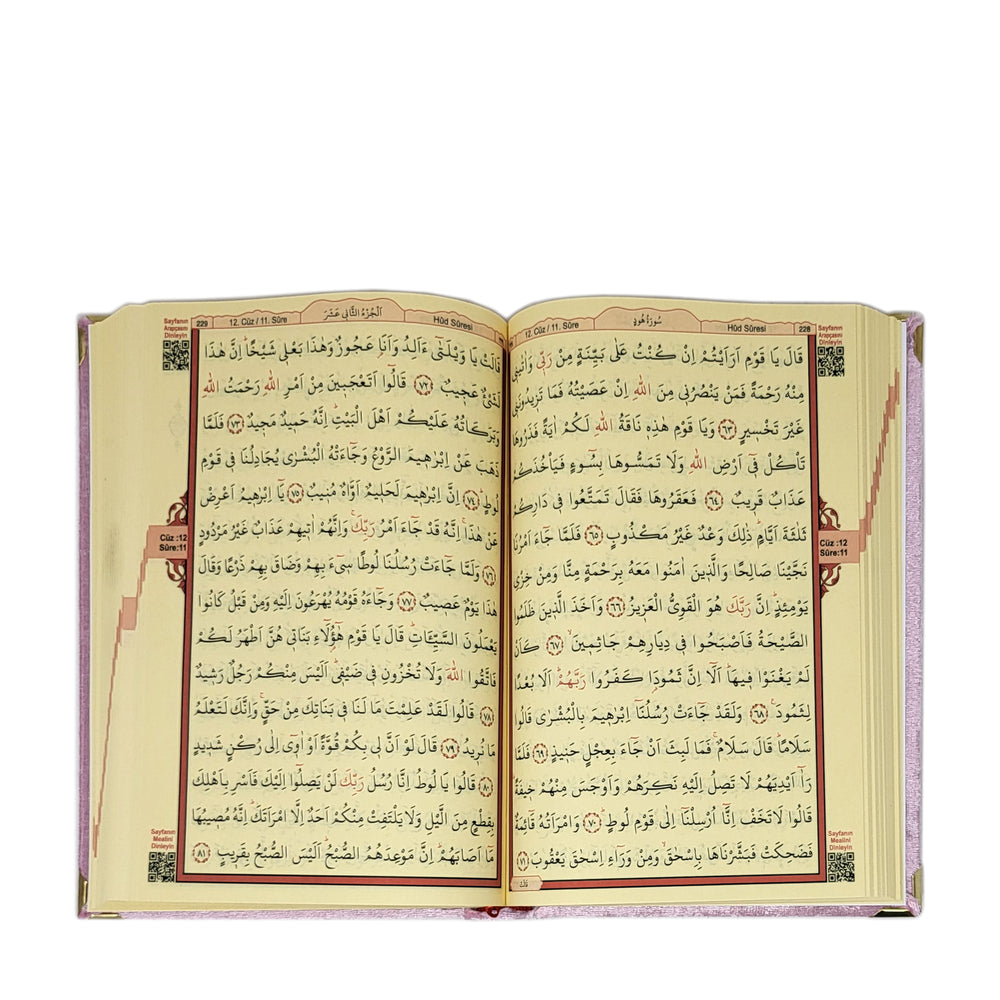 Sayfanın
Arapçasını
Dinleyin
228
Hûd Sûresi
سُورَةُ هُودٍ
12. Cüz / 11. Sûre
قَالَ يَا قَوْمِ اَرَاَيْتُمْ اِنْ كُنْتُ عَلٰى بَيِّنَةٍ مِنْ رَبّ۪ي وَاٰتٰين۪ي
مِنْهُ رَحْمَةً فَمَنْ يَنْصُرُن۪ي مِنَ اللّٰهِ اِنْ عَصَيْتُهُ فَمَا تَز۪يدُونَن۪ي
غَيْرَ تَخْس۪يرٍ ﴿٦٣﴾ وَيَا قَوْمِ هٰذِه۪ نَاقَةُ اللّٰهِ لَكُمْ اٰيَةً فَذَرُوهَا
تَأْكُلْ ف۪ٓي اَرْضِ اللّٰهِ وَلَا تَمَسُّوهَا بِسُٓوءٍ فَيَأْخُذَكُمْ
عَذَابٌ قَر۪يبٌ ﴿٦٤﴾ فَعَقَرُوهَا فَقَالَ تَمَتَّعُوا ف۪ي دَارِكُمْ
ثَلٰثَةَ اَيَّامٍۜ ذٰلِكَ وَعْدٌ غَيْرُ مَكْذُوبٍ ﴿٦٥﴾ فَلَمَّا جَٓاءَ اَمْرُنَا
نَجَّيْنَا صَالِحًا وَالَّذ۪ينَ اٰمَنُوا مَعَهُ بِرَحْمَةٍ مِنَّا وَمِنْ خِزْيِ
يَوْمِئِذٍۜ اِنَّ رَبَّكَ هُوَ الْقَوِيُّ الْعَز۪يزُ ﴿٦٦﴾ وَاَخَذَ الَّذ۪ينَ ظَلَمُوا
الصَّيْحَةُ فَاَصْبَحُوا ف۪ي دِيَارِهِمْ جَاثِم۪ينَۙ ﴿٦٧﴾ كَاَنْ
لَمْ يَغْنَوْا ف۪يهَاۜ اَلَٓا اِنَّ ثَمُودَا۬ كَفَرُوا رَبَّهُمْۜ اَلَا بُعْدًا
لِثَمُودَ۟ ﴿٦٨﴾ وَلَقَدْ جَٓاءَتْ رُسُلُنَٓا اِبْرٰه۪يمَ بِالْبُشْرٰى قَالُوا
سَلَامًاۜ قَالَ سَلَامٌ فَمَا لَبِثَ اَنْ جَٓاءَ بِعِجْلٍ حَن۪يذٍ ﴿٦٩﴾ فَلَمَّا
رَآٰ اَيْدِيَهُمْ لَا تَصِلُ اِلَيْهِ نَكِرَهُمْ وَاَوْجَسَ مِنْهُمْ خ۪يفَةًۜ
قَالُوا لَا تَخَفْ اِنَّٓا اُرْسِلْنَٓا اِلٰى قَوْمِ لُوطٍۜ ﴿٧٠﴾ وَامْرَاَتُهُ قَٓائِمَةٌ
فَضَحِكَتْ فَبَشَّرْنَاهَا بِاِسْحٰقَۙ وَمِنْ وَرَٓاءِ اِسْحٰقَ يَعْقُوبَ ﴿٧١﴾
Cüz :12
Sûre:11
Sayfanın
Mealini
Dinleyin
Sayfanın
Arapçasını
Dinleyin
229
12. Cüz / 11. Sûre
اَلْجُزْءُ الثَّانِي عَشَرَ
Hûd Sûresi
قَالَتْ يَا وَيْلَتٰٓى ءَاَلِدُ وَاَنَا۬ عَجُوزٌ وَهٰذَا بَعْل۪ي شَيْخًاۜ اِنَّ هٰذَا
لَشَيْءٌ عَج۪يبٌ ﴿٧٢﴾ قَالُٓوا اَتَعْجَب۪ينَ مِنْ اَمْرِ اللّٰهِ رَحْمَتُ اللّٰهِ
وَبَرَكَاتُهُ عَلَيْكُمْ اَهْلَ الْبَيْتِۜ اِنَّهُ حَم۪يدٌ مَج۪يدٌ ﴿٧٣﴾ فَلَمَّا
ذَهَبَ عَنْ اِبْرٰه۪يمَ الرَّوْعُ وَجَٓاءَتْهُ الْبُشْرٰى يُجَادِلُنَا ف۪ي قَوْمِ
لُوطٍۜ ﴿٧٤﴾ اِنَّ اِبْرٰه۪يمَ لَحَل۪يمٌ اَوَّاهٌ مُن۪يبٌ ﴿٧٥﴾ يَٓا اِبْرٰه۪يمُ اَعْرِضْ
عَنْ هٰذَاۚ اِنَّهُ قَدْ جَٓاءَ اَمْرُ رَبِّكَۚ وَاِنَّهُمْ اٰت۪يهِمْ عَذَابٌ غَيْرُ مَرْدُودٍ
﴿٧٦﴾ وَلَمَّا جَٓاءَتْ رُسُلُنَا لُوطًا س۪ٓيءَ بِهِمْ وَضَاقَ بِهِمْ ذَرْعًا وَقَالَ
هٰذَا يَوْمٌ عَص۪يبٌ ﴿٧٧﴾ وَجَٓاءَهُ قَوْمُهُ يُهْرَعُونَ اِلَيْهِ وَمِنْ قَبْلُ كَانُوا
يَعْمَلُونَ السَّيِّـَٔاتِۜ قَالَ يَا قَوْمِ هٰٓؤُ۬لَٓاءِ بَنَات۪ي هُنَّ اَطْهَرُ لَكُمْ
فَاتَّقُوا اللّٰهَ وَلَا تُخْزُونِ ف۪ي ضَيْف۪يۜ اَلَيْسَ مِنْكُمْ رَجُلٌ رَش۪يدٌ
﴿٧٨﴾ قَالُوا لَقَدْ عَلِمْتَ مَا لَنَا ف۪ي بَنَاتِكَ مِنْ حَقٍّۚ وَاِنَّكَ لَتَعْلَمُ
مَا نُر۪يدُ ﴿٧٩﴾ قَالَ لَوْ اَنَّ ل۪ي بِكُمْ قُوَّةً اَوْ اٰو۪ٓي اِلٰى رُكْنٍ شَد۪يدٍ
﴿٨٠﴾ قَالُوا يَا لُوطُ اِنَّا رُسُلُ رَبِّكَ لَنْ يَصِلُٓوا اِلَيْكَ فَاَسْرِ بِاَهْلِكَ
بِقِطْعٍ مِنَ الَّيْلِ وَلَا يَلْتَفِتْ مِنْكُمْ اَحَدٌ اِلَّا امْرَاَتَكَۜ اِنَّهُ مُص۪يبُهَا
مَٓا اَصَابَهُمْۜ اِنَّ مَوْعِدَهُمُ الصُّبْحُۜ اَلَيْسَ الصُّبْحُ بِقَر۪يبٍ ﴿٨١﴾
Cüz :12
Sûre:11
Sayfanın
Mealini
Dinleyin